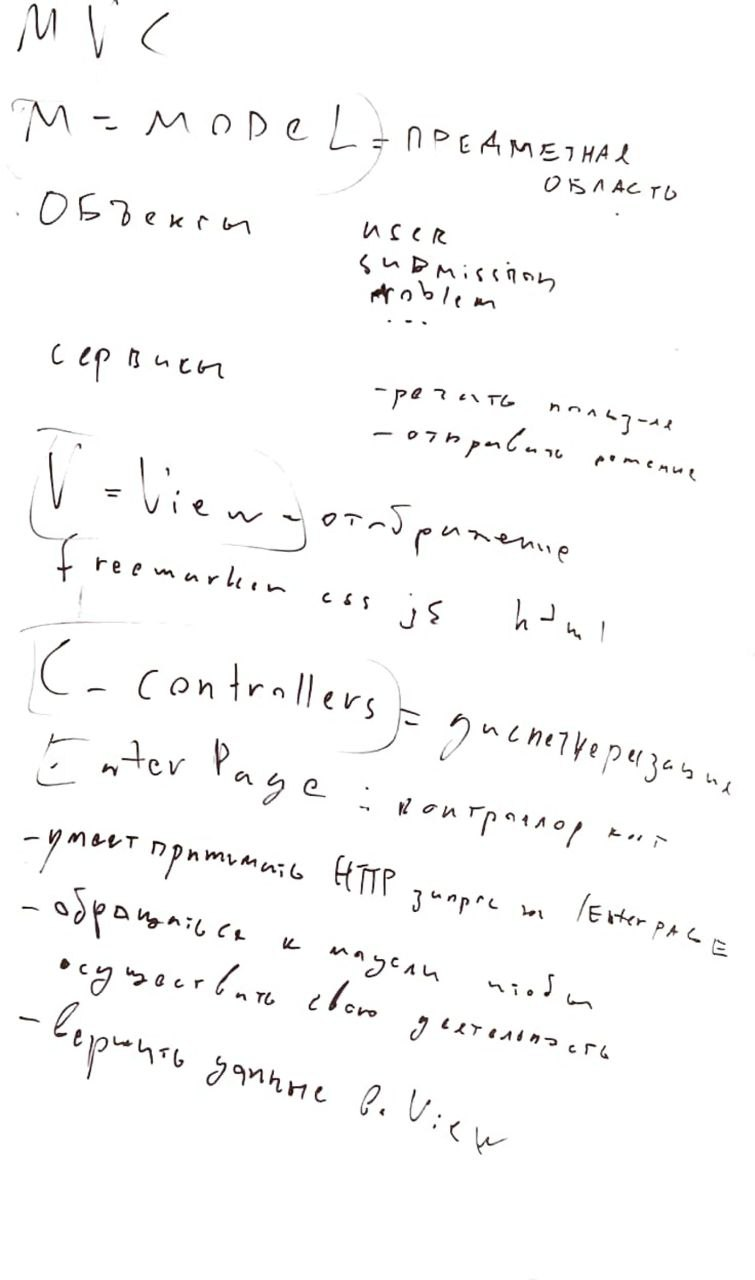 MVC
M = MODEL = ПРЕДМЕТНАЯ
ОБЛАСТЬ
Объекты
USER
SUBMISSION
Problem
...
Сервисы
- отправить решение
V = View - отображение
freemarker css js html
C - Controllers = диспетчеризация
Enter Page : контроллер
- умеет принимать HTTP запрс на /EnterPAGE
- обращаться к модели чтобы
осуществить свою деятельность
- вернуть данные в View